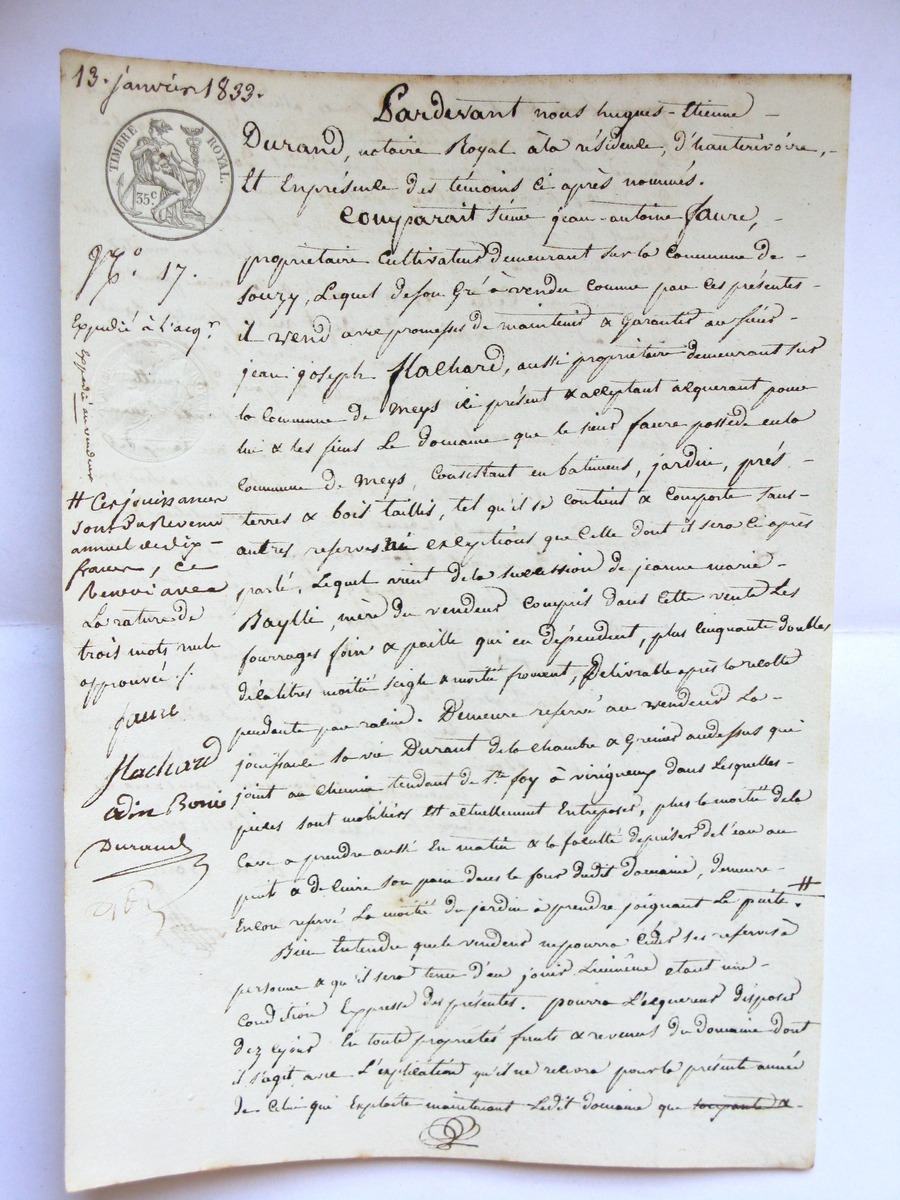 13. janvier 1833.
TIMBRE ROYAL.
35c
Pardevant nous hugues-Etienne
Durand, notaire Royal à la résidence, d'hauterivoire,
Et En présence des témoins ci après nommés.
Comparait sieur jean-antoine faure,
propriétaire Cultivateur demeurant sur la Commune de
souzy, Lequel de son Gré à vendu comme par ces présentes
il vend avec promesses de maintenir & Garantir au sieur
jean joseph flachard, aussi propriétaire demeurant sur
la Commune de meys ici présent & acceptant acquerant pour
lui & les siens Le domaine que le sieur faure possède en la
Commune de meys, Consistant en batimens, jardin, prés
terres & bois taillis, tel qu'il se contient & comporte sans
autres reserves ni exceptions que Celle dont il sera Ci après
parlé, Lequel vient de la succession de jeanne marie
Baylli, mère du vendeur compris dans Cette vente Les
fourrages foin & paille qui en dépendent, plus Cinquante doubles
décalitres moitié seigle & moitié froment, Délivrable après la récolte
pendante par racine. Demeure reservé au vendeur La
jouissance sa vie Durant de la Chambre & Grenier audessus qui
joint au Chemin tendant de Ste foy à virigneux dans Lesquelles
pièces sont mobiliers Et actuellement Entreposés, plus la moitié de la
Cave a prendre aussi En matin & la faculté de puiser de l'eau au
puit & de Cuire son pain dans le four dudit domaine, demeure
Encore reservé La moitié du jardin à prendre joignant Le puits. #
Bien Entendu que le vendeur ne pourra Céder ses reserves à
personne & qu'il sera tenu d'en jouir Luimême etant une
Condition Expresse des présentes. pourra L'acquereur disposer
dez ce jour En toute propriétés fruits & revenus du domaine dont
il s'agit avec L'explication qu'il ne recevra pour la présente année
de Celui qui Exploite maintenant Ledit domaine que
No. 17.
Expédié à l'acqr.
Expédié au vendeur
# Ces jouissances
sont du Revenu
annuel de dix
francs, Ce
Renvoi avec
La rature de
trois mots nuls
approuvé ./.
faure
flachard
Durand